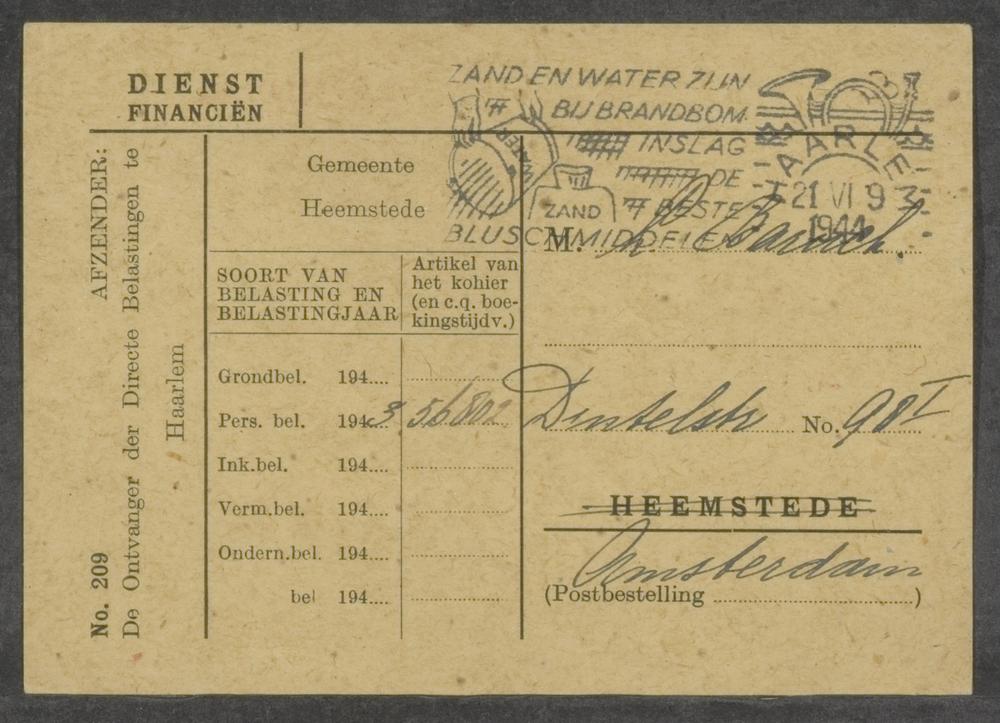 DIENST
FINANCIËN
ZAND EN WATER ZIJN
BIJ BRANDBOM
INSLAG
DE
BESTE
BLUSCHMIDDELEN
WATER
ZAND
HAARLEM
21 VI 9
1944
No. 209
AFZENDER:
De Ontvanger der Directe Belastingen te
Haarlem
Gemeente
Heemstede
SOORT VAN
BELASTING EN
BELASTINGJAAR
Artikel van
het kohier
(en c.q. boe-
kingstijdv.)
Grondbel. 194....
Pers. bel. 1943 56802
Ink.bel. 194....
Verm.bel. 194....
Ondern.bel. 194....
bel 194....
M.
Dintelstr No. 98 I
HEEMSTEDE
Amsterdam
(Postbestelling ....................)